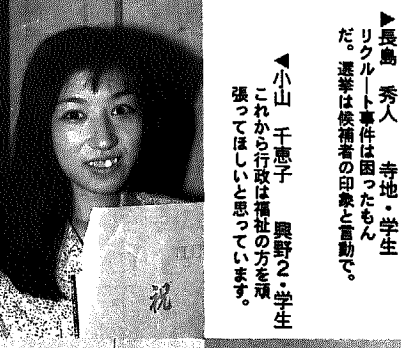 ▶長島　秀人　　寺地・学生
リクルート事件は困ったもん
だ。選挙は候補者の印象と言動で。
◀小山　千恵子　　興野2・学生
これから行政は福祉の方を頑
張ってほしいと思っています。
祝